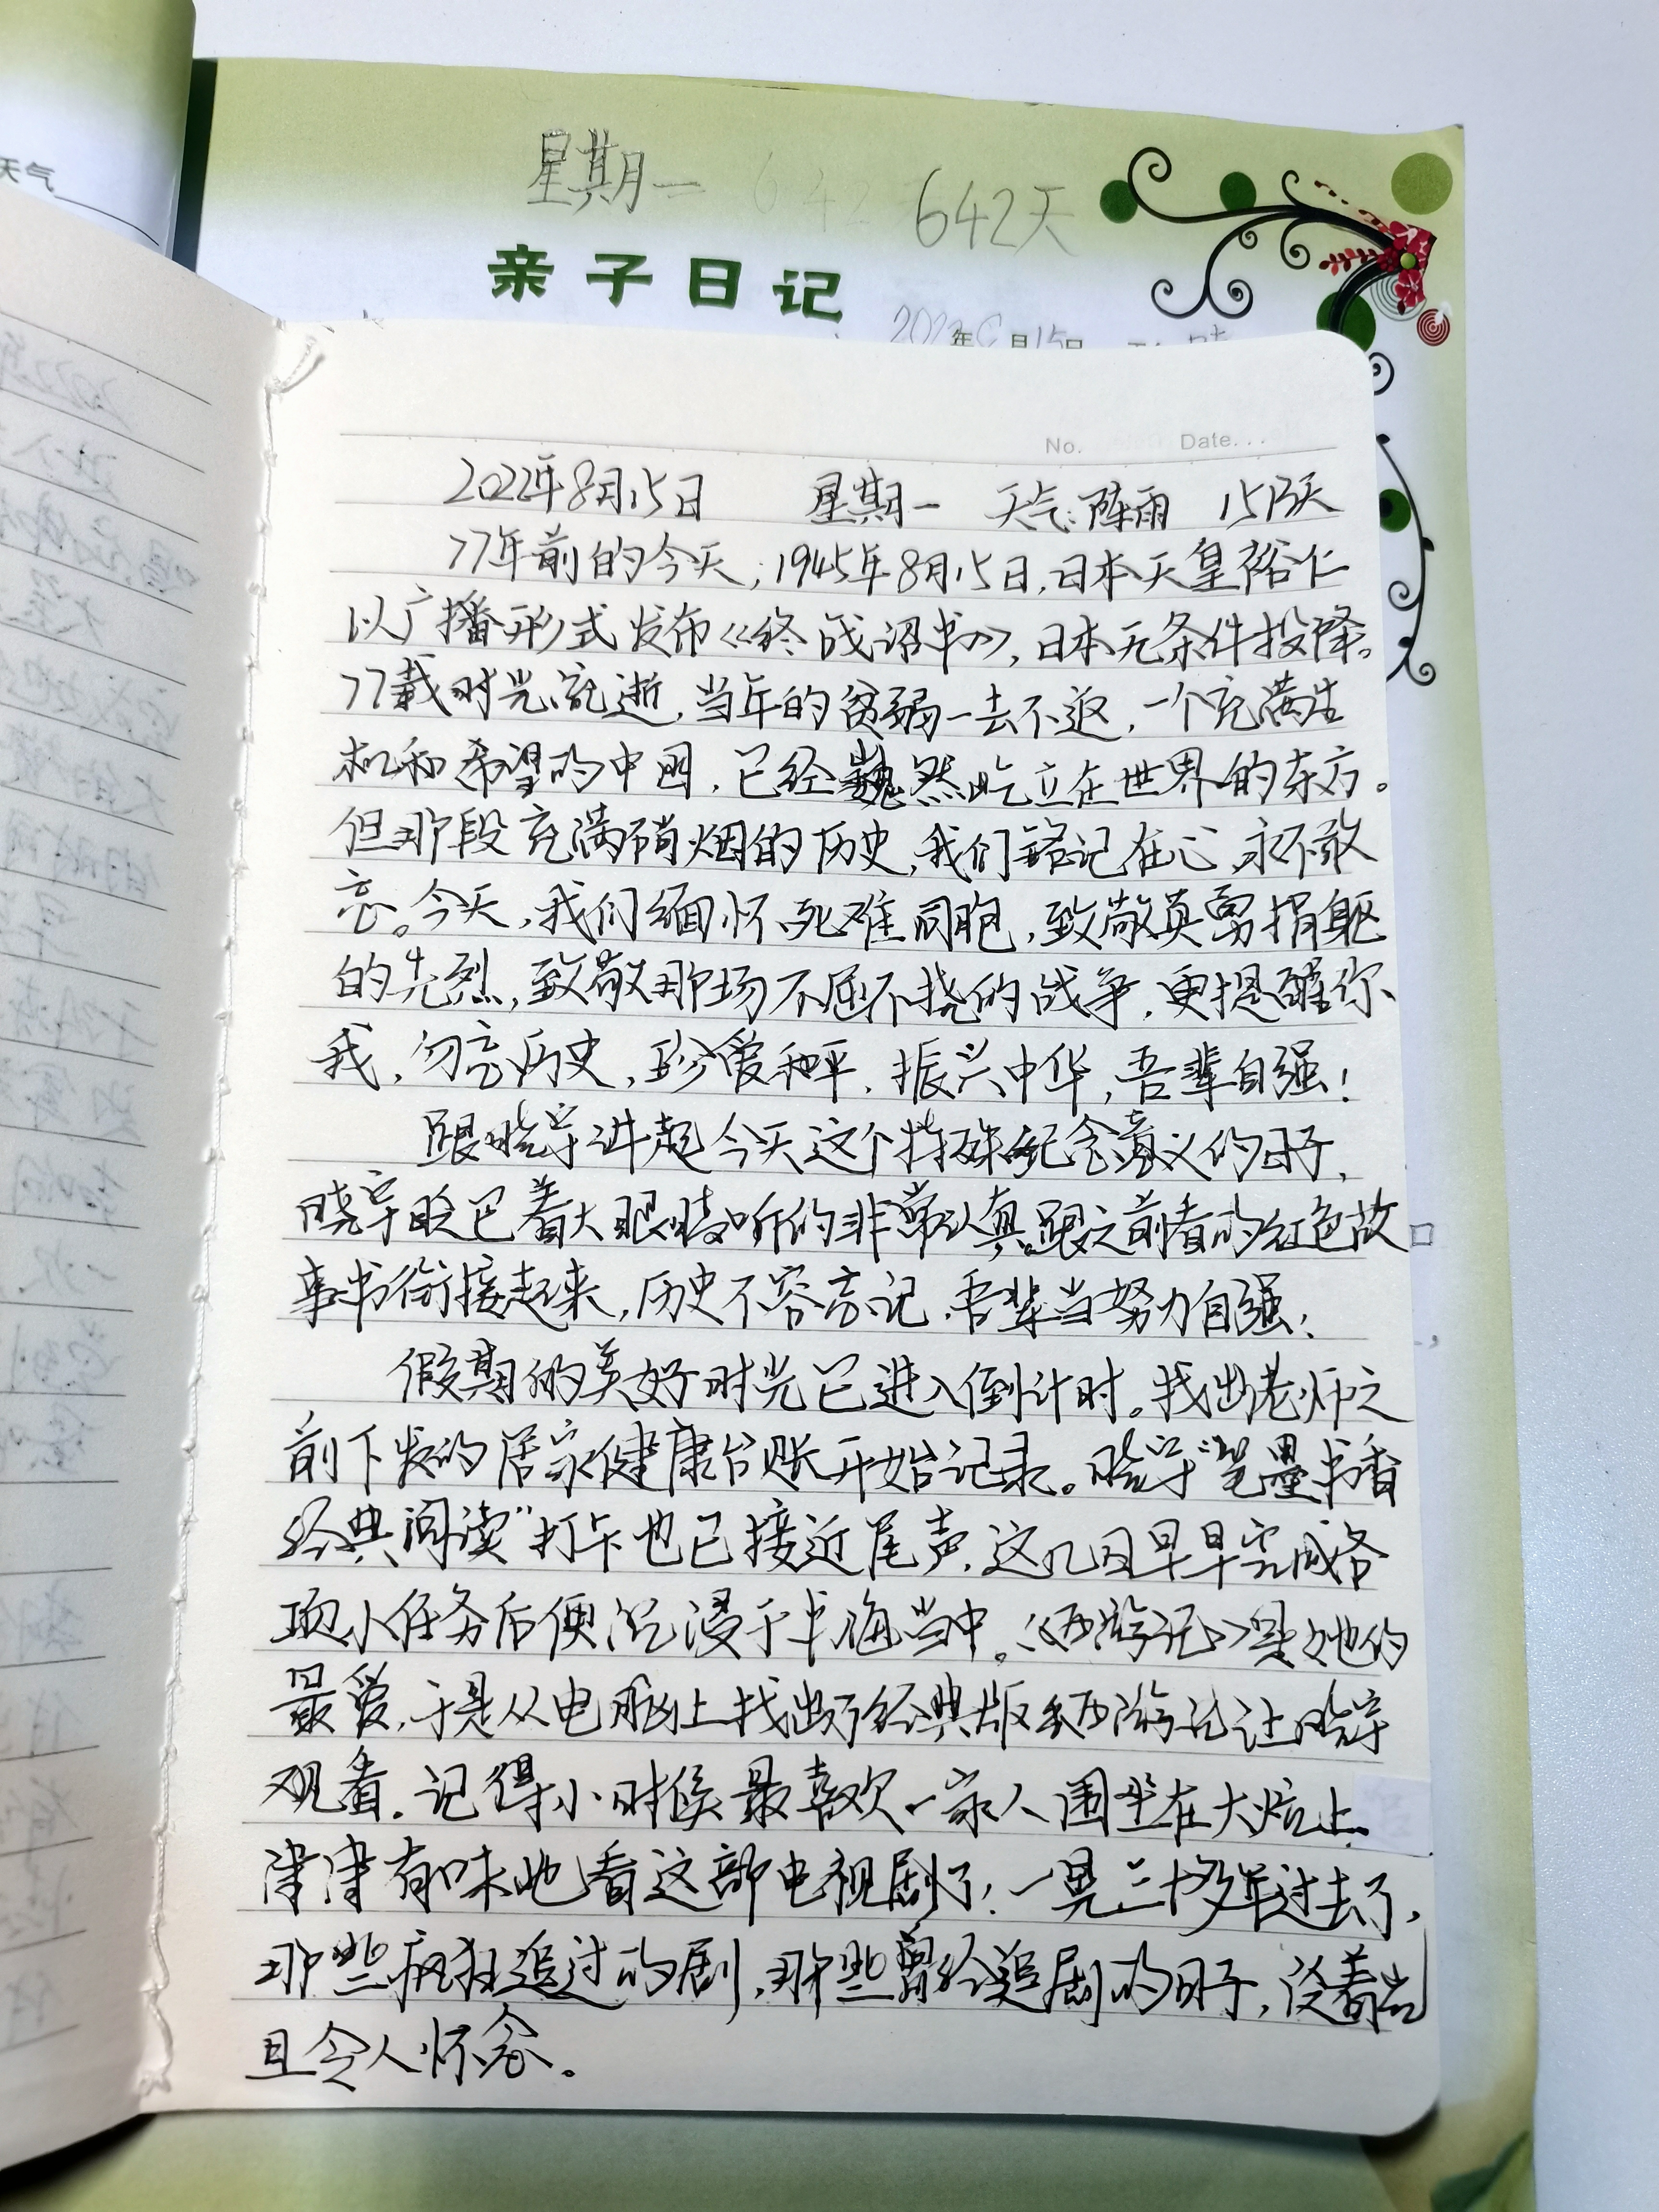 天气
星期一 642天
亲子日记
年 月15日
No. Date...
2022年8月15日 星期一 天气:阵雨
77年前的今天,1945年8月15日,日本天皇裕仁
以广播形式发布《终战诏书》,日本无条件投降。
77载时光流逝,当年的贫弱一去不返,一个充满生
机和希望的中国,已经巍然屹立在世界的东方。
但那段充满硝烟的历史,我们铭记在心,永不敢
忘。今天,我们缅怀死难同胞,致敬英勇捐躯
的先烈,致敬那场不屈不挠的战争,更提醒你
我,勿忘历史,珍爱和平,振兴中华,吾辈自强!
跟晓宇讲起今天这个特殊纪念意义的日子,
晓宇眨巴着大眼睛听的非常认真。跟之前看的红色故
事书衔接起来,历史不容忘记,吾辈当努力自强!
假期的美好时光已进入倒计时。找出老师之
前下发的居家健康台账开始记录。晓宇“笔墨书香
经典阅读”打卡也已接近尾声,这几日早早完成各
项小任务后便沉浸于书海当中。《西游记》是她的
最爱,于是从电脑上找出了经典版 西游记让晓宇
观看。记得小时候最喜欢一家人围坐在大炕上
津津有味地看这部电视剧了!一晃三十多年过去了,
那些疯狂追过的剧,那些曾经追剧的日子,
且令人怀念。